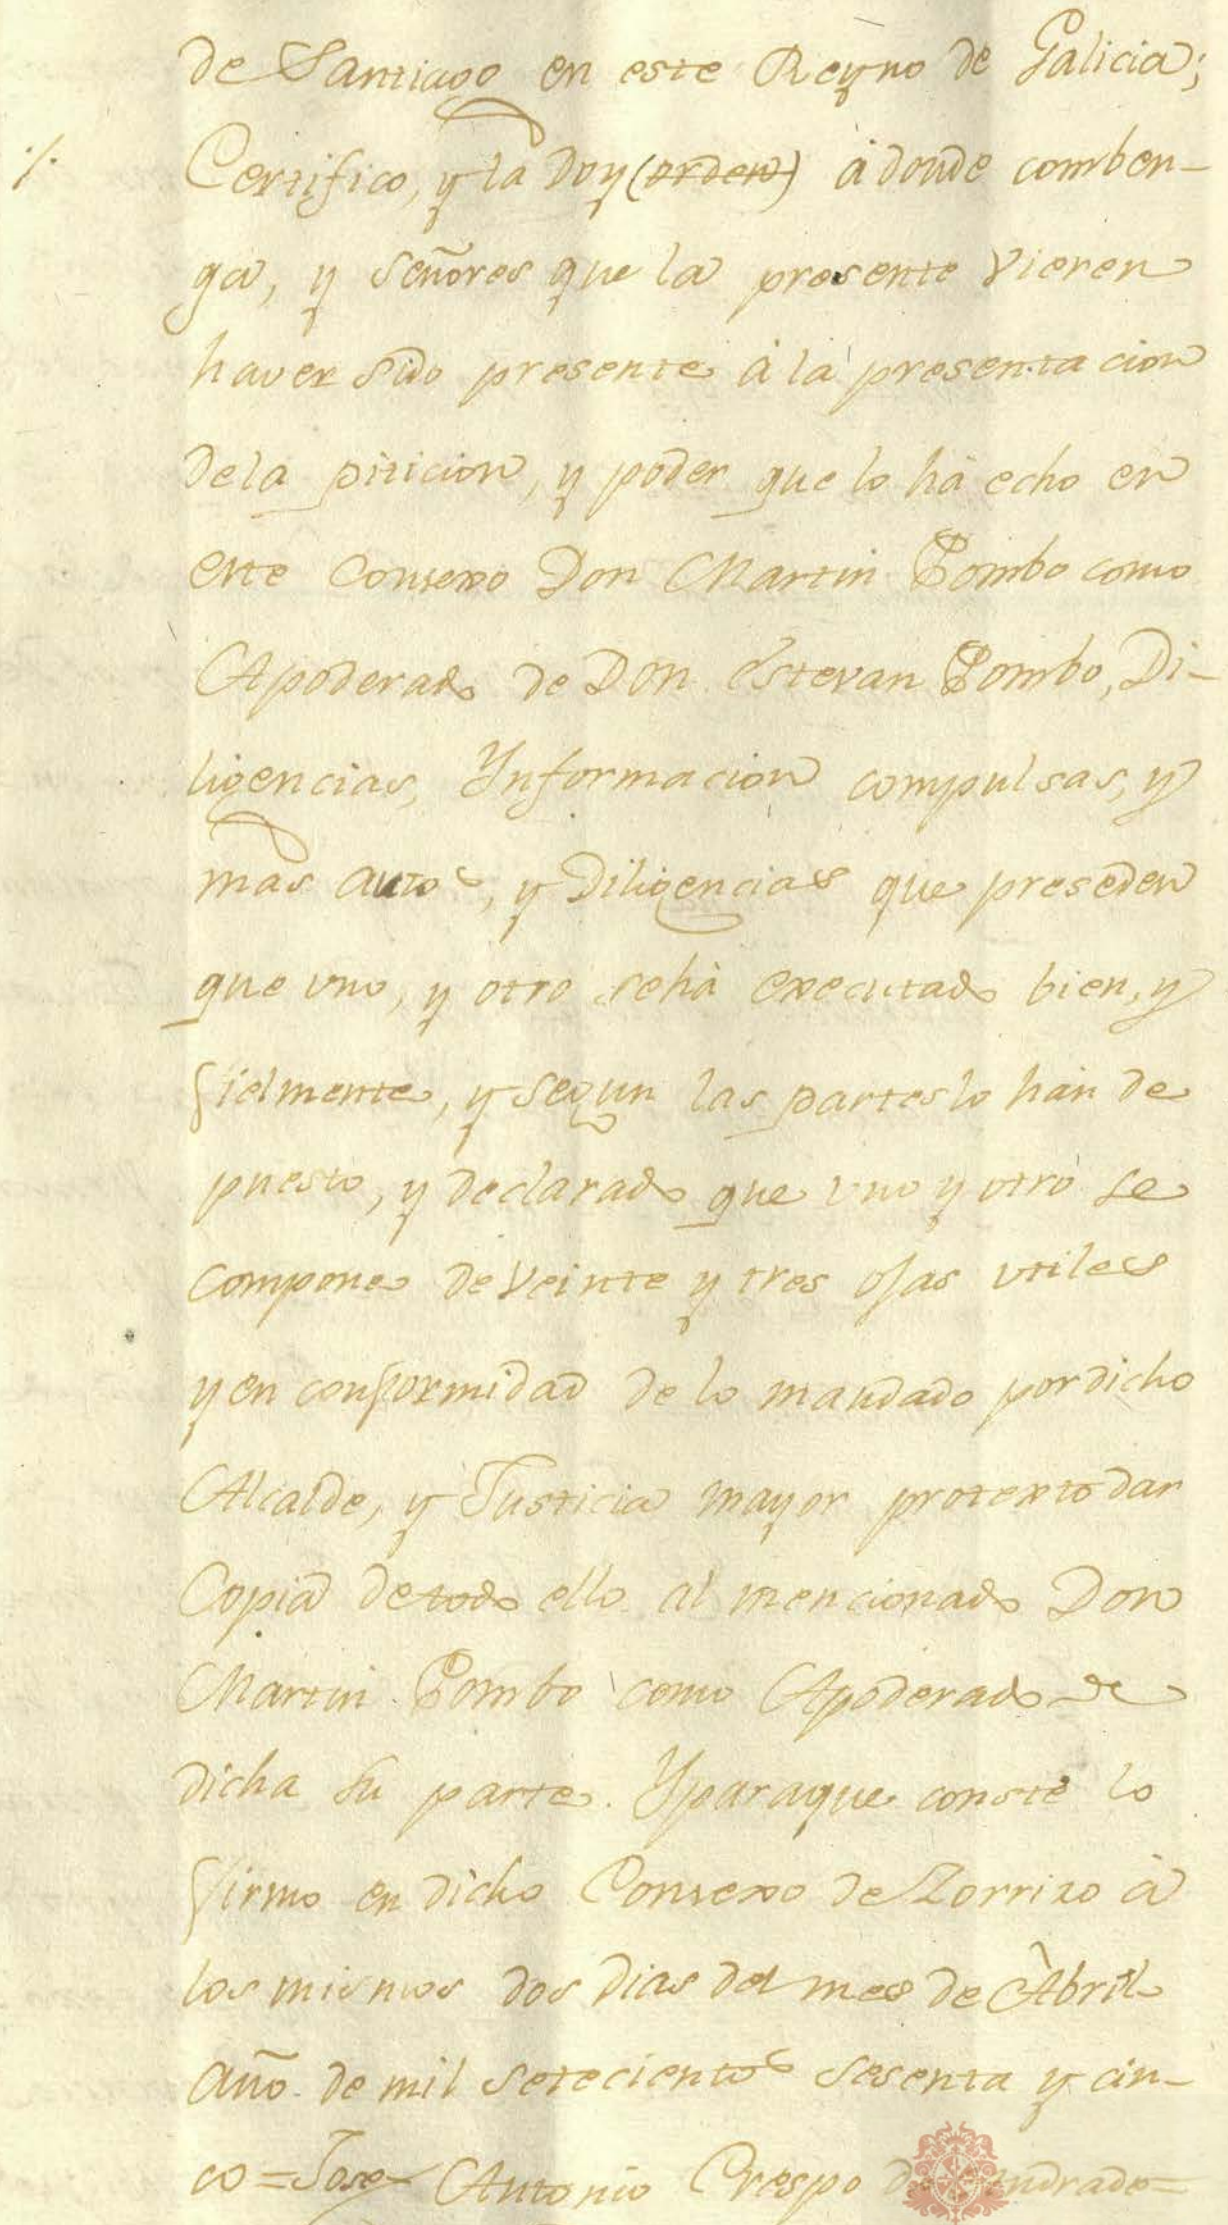 de Santiago en este Reyno de Galicia;
./. Certifico, y la doy (orden) á donde comben-
ga, y Señores que la presente vieren
haver sido presente á la presentacion
dela piticion, y poder que lo há echo en
este Consexo Don Martin Pombo como
Apoderado de Don Estevan Pombo, Di-
ligencias, Ynformacion compulsas, y
mas autos, y Diligencias que preseden
que uno, y otro sehá executado bien, y
fielmente, y segun las partes lo hán de
puesto, y declarado que uno y otro se
compone de Veinte y tres ojas utiles
y en conformidad de lo mandado por dicho
Alcalde, y Justicia mayor protexto dar
Copia de todo ello al mencionado Don
Martin Pombo como Apoderado de
dicha su parte. Y paraque conste lo
firmo en dicho Consexo de Zorrizo á
los mismos dos dias del mes de Abril
año de mil setecientos sesenta y cin-
co = Jose Antonio Crespo de Andrade =